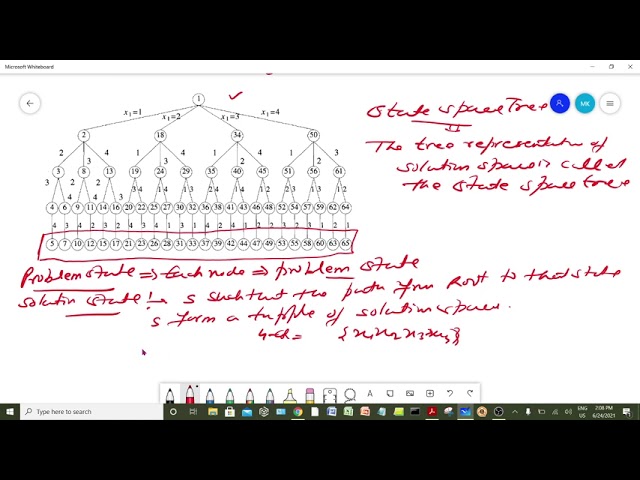 Microsoft Whiteboard
MK
1
x₁=1 x₁=2 x₁=3 x₁=4
2 18 34 50
2 3 4 1 3 4 1 2 4 1 2 3
3 8 13 19 24 29 35 40 45 51 56 61
4 6 9 11 14 16 20 22 25 27 30 32 36 38 41 43 46 48 52 54 57 59 62 64
5 7 10 12 15 17 21 23 26 28 31 33 37 39 42 44 47 49 53 55 58 60 63 65
State space Tree
The tree representation of
solution space is called
the state space tree
Problem state ⇒ Each node ⇒ problem state
solution state : s such that the path from Root to that state
s form a tuple of solution space.
4-Q = {x₁x₂x₃x₄}
Type here to search
ENG
US
2:08 PM
6/24/2021